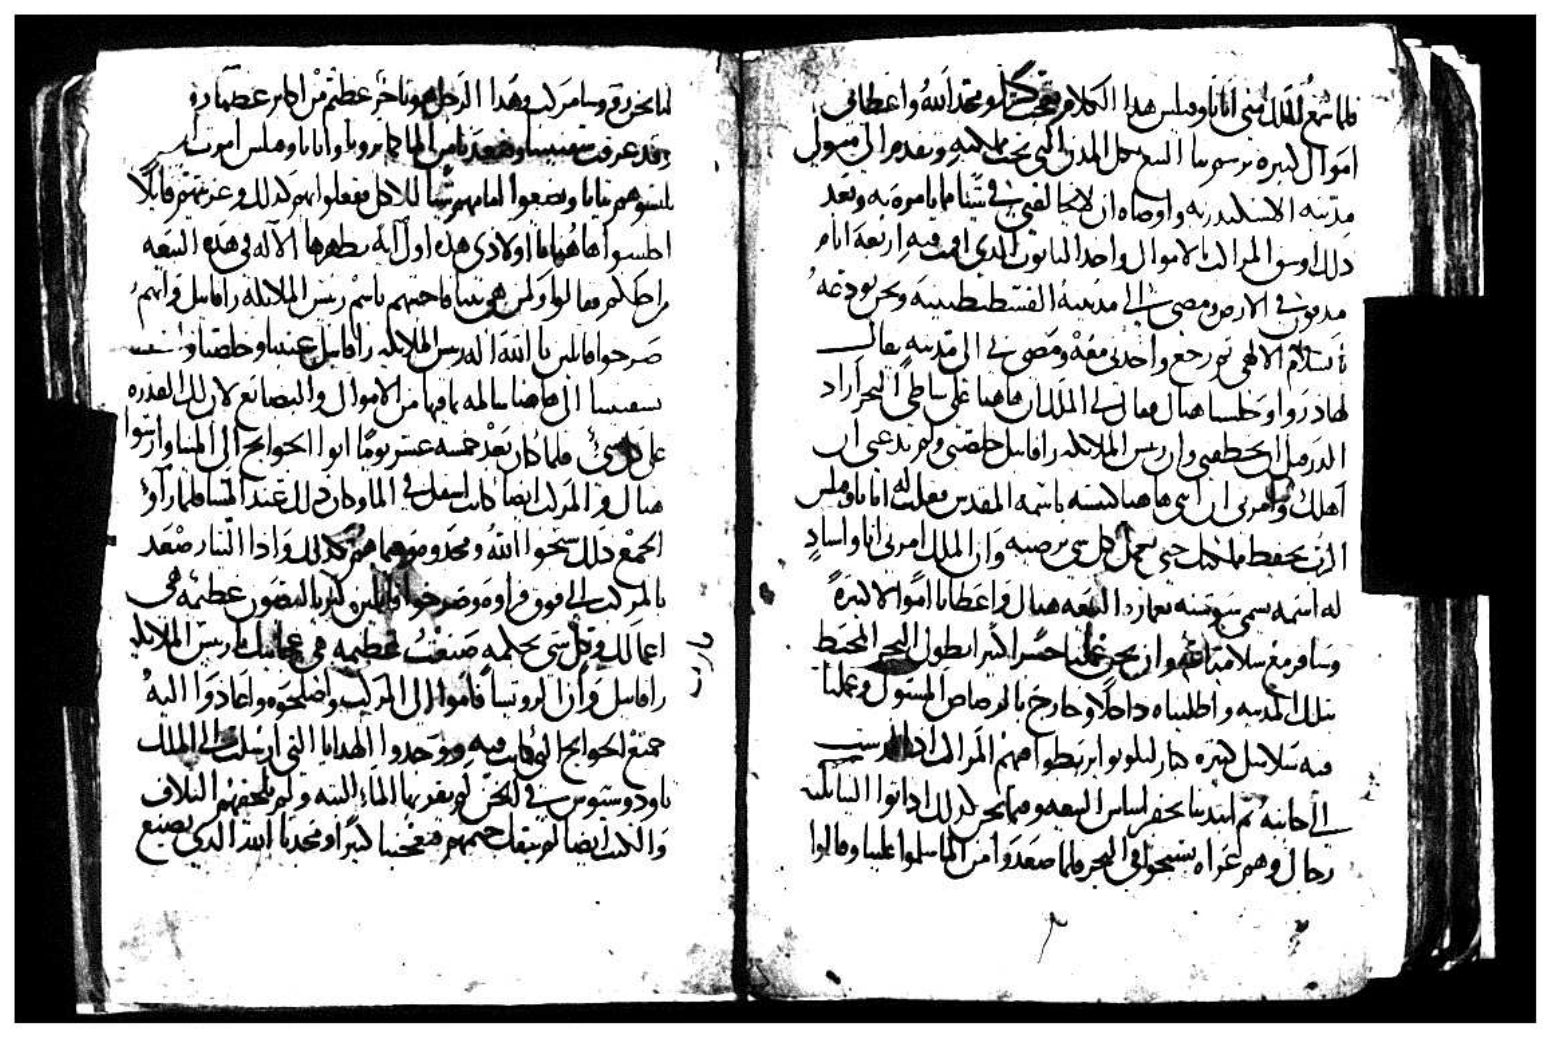 فلما سمع الملك مني انا ناوفيلس هذا الكلام تعجب كثيرا ومجد الله واعطاني
اموال كثيره ورسم بنا البيع بكل المدن التي تحت ملكته وتقدم الى متولي
مدينه الاسكندريه واوصاه ان لا يخالفني في شيئا مما نامره به وبعد
ذلك اوسق المراكب بالاموال واخد التابوت الدي اقمت فيه اربعة ايام
مدفون في الارض ومضى الى مدينة القسطنطينيه ونحن نودعه
بالسلام الالهي ثم رجع واخدني معه ومضى بي الى مدينه يقال
لها دروا وجلسنا هنال فقال لي الملك ان هاهنا على شاطي البحر اراد
الدرفيل ان يخطفني وان ريس الملايكه رافاييل خلصني ولم يدعني ان
اهلك وامرني ان ابني هاهنا كنيسه باسمه المقدس فقلت له انا ناوفيلس
الرب يحفظ مملكتك حتى تكمل كل شي يرضيه وان الملك امرني انا واسادٍ
له اسمه يسمى سوسنه بعمارة البيعه هنال واعطانا اموالا كثيرةً
وسافر مع سلامة الله وان نحن عملنا جسرا كبيرا بطول البحر المحيط
بتلك المدينه واطليناه داخلًا وخارج بالرصاص المسبول وعملنا
فيه سلاسل كثيره كبار ليكونوا يربطوا فيهم المراكب اذا ارست
الى جانبه ثم ابتدينا بحفر اساس البيعه وفيما نحن كذلك اذ اتوا الينا ثلثه
رجال وهم عراه يسبحوا في البحر فلما صعدوا من الما سلموا علينا وقالوا
لنا نحن روقوسا مركب وهدا الرجل هو تاجر عظيم من اكابر عظما رود
وقد غرقت سفينتنا وصعدنا من الما كما ترونا وانا ناوفيلس امرت
يلبسوهم ثيابا ويضعوا امامهم شيا للاكل ففعلوا بهم كدلك وعزيتهم قايلًا
اجلسوا هاهنا يا اولادي هذه اول آية يظهرها الاله في هذه البيعه
من اجلكم فقالوا ولمن هي بيتنا فاجبتهم باسم ريس الملايكه رافاييل وانهم
صرخوا قايلين يا الله اله ريس الملايكه رافاييل عيننا وخلصنا
سفينتنا الى هاهنا سالمه بما فيها من الاموال والبضايع لان لك القدره
على كل شيٍ فلما كان بعد خمسه عشر يومًا اتوا الحوايج الى المينا وارسوا
هنال والمركب ايضا كانت اسفل في الما وكان ذلك عند المسا فلما راوا
الجمع ذلك سبحوا الله ومجدوه وفيما هم كذلك واذا التيار صعد
بالمركب الى فوق فراوه وصرخوا قايلين كيرياليصون عظيمه هي
اعمالك يارب كل شي بحكمه صنعت عظيمه هي عجايبك يا ريس الملايكه
رافاييل وان الروتسا قاموا الى المركب واصلحوه واعادوا اليه
جميع الحوايج التي كانت فيه ووجدوا الهدايا التي ارسلت الى الملك
تاودوسيوس في الخن لم يقربها الماء البته ولم يلحقهم التلاف
والكتب ايضا لم ينفك ختمهم فتعجبنا كثيرًا ومجدنا الله الدي يصنع
يارب